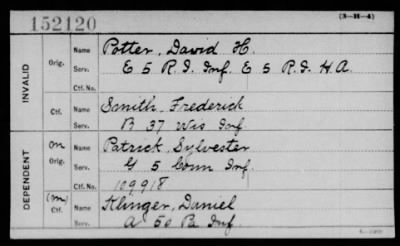 152120
(3-H-4)
INVALID
Orig.
Name Potter, David H.
Serv. E 5 R.I. Inf. E 5 R.I. H.A.
Ctf. No.
Ctf.
Name Smith Frederick
Serv. B 37 Wis Inf
DEPENDENT
m
Orig.
Name Patrick, Sylvester
Serv. G 5 Conn Inf.
Ctf. No. 109,918
(m)
Ctf.
Name Klinger, Daniel
Serv. A 50 Pa Inf.